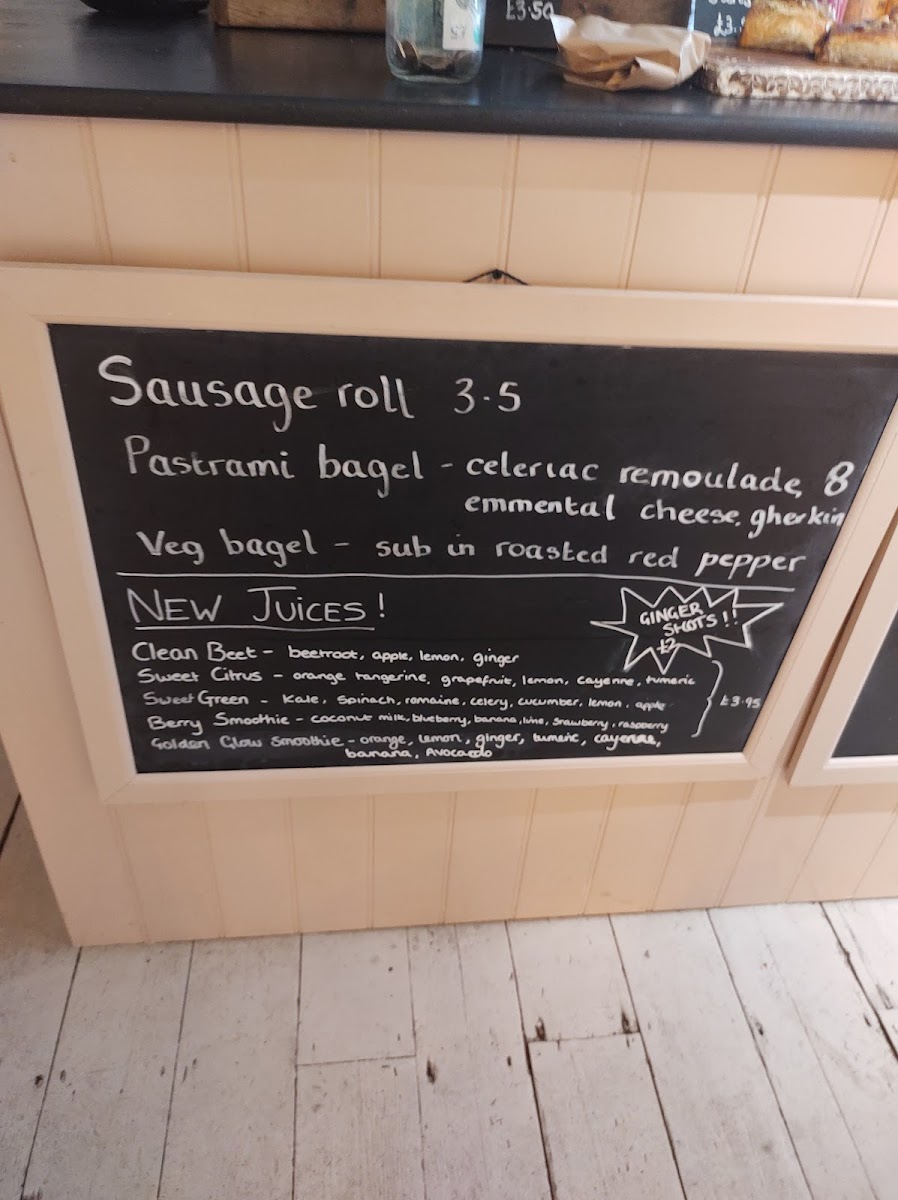 £3.50
£3.
Sausage roll 3.5
Pastrami bagel - celeriac remoulade, 8
emmental cheese, gherkin
Veg bagel - sub in roasted red pepper
NEW JUICES!
GINGER
SHOTS!!
£2
Clean Beet - beetroot, apple, lemon, ginger
Sweet Citrus - orange tangerine, grapefruit, lemon, cayenne, tumeric
Sweet Green - Kale, spinach, romaine, celery, cucumber, lemon, apple
£3.95
Berry Smoothie - coconut milk, blueberry, banana, lime, strawberry, raspberry
Golden Glow Smoothie - orange, lemon, ginger, tumeric, cayenne,
banana, Avocado